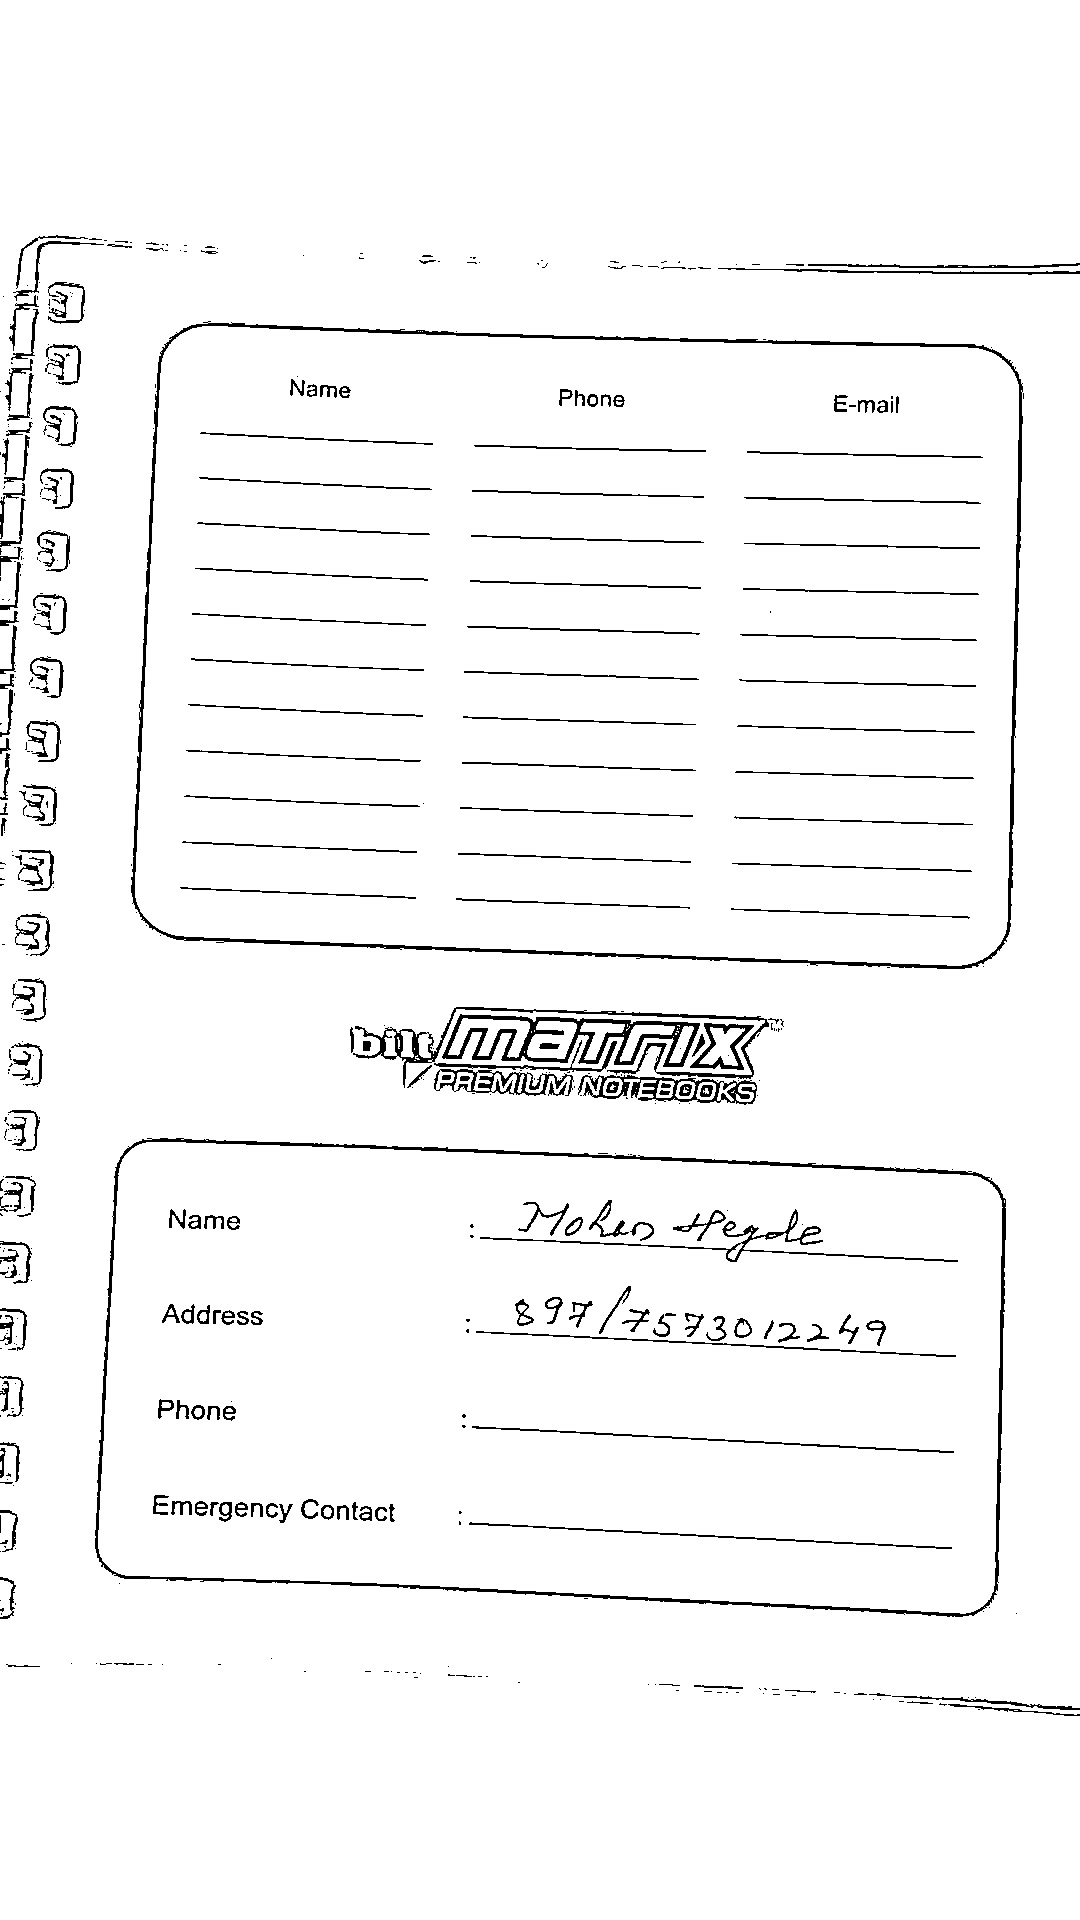 Name Phone E-mail
bilt matrix ™
PREMIUM NOTEBOOKS
Name : Mohan Hegde
Address : 897/7573012249
Phone :
Emergency Contact :